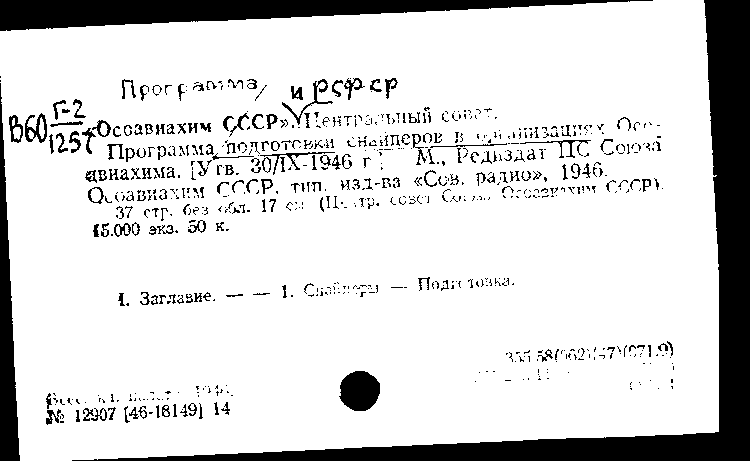 Программа, и РСФСР
В60 Г-2
1257
«Осоавиахим СССР». Центральный совет.
Программа подготовки снайперов в организациях Осо-
авиахима. [Утв. 30/IX-1946 г.] М., Редиздат ЦС Союза
Осоавиахим СССР, тип. изд-ва «Сов. радио», 1946.
37 стр. без обл. 17 см (Центр. совет Союза Осоавиахим СССР).
15.000 экз. 50 к.
1. Заглавие. — — 1. Снайперы — Подготовка.
355.58(062)(47)(071.9)
№ 12907 [46-18149] 14